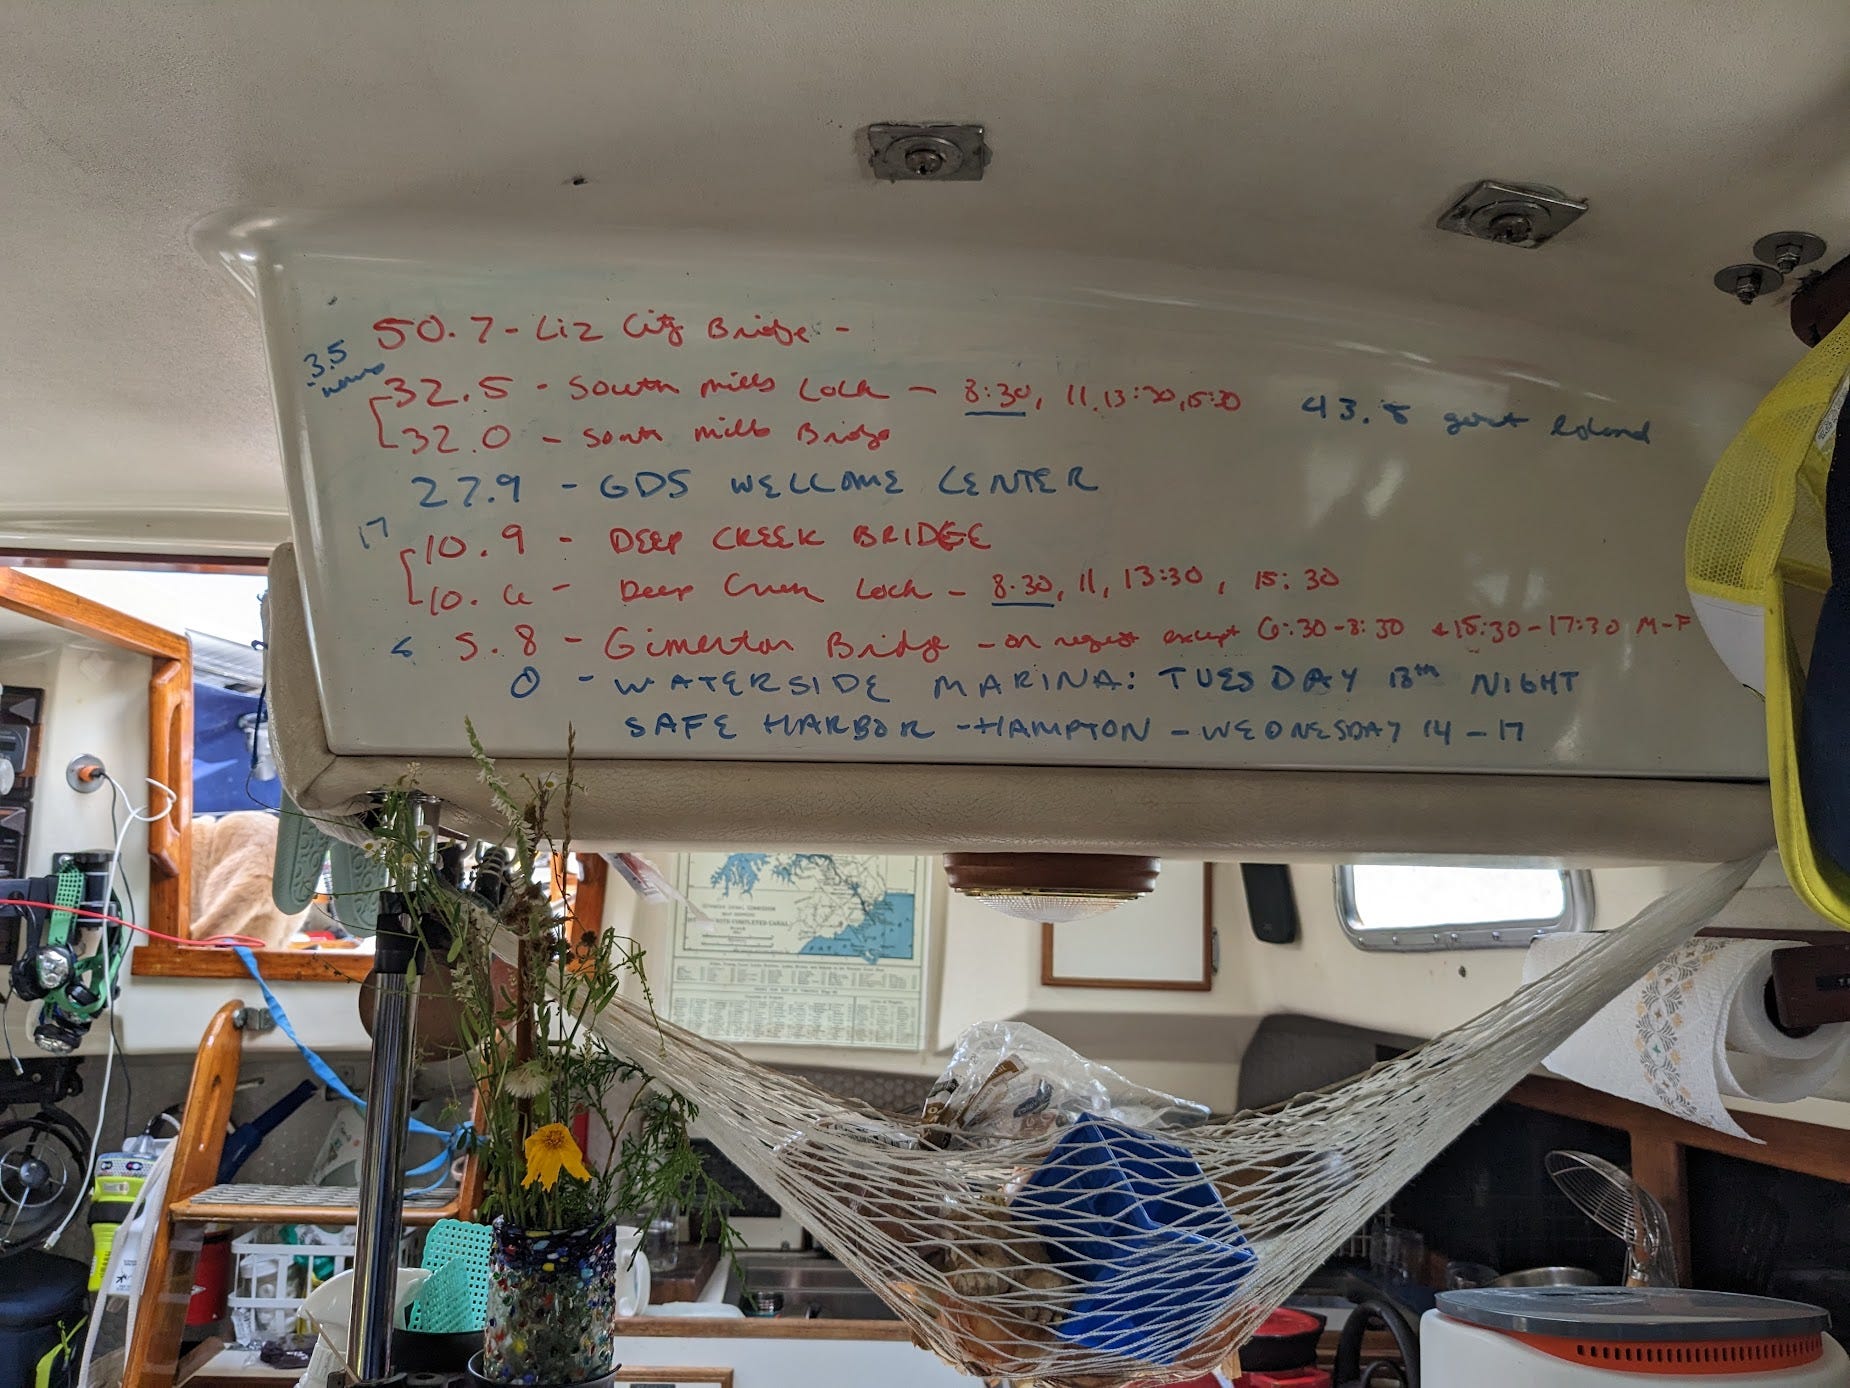 50.7 - Liz City Bridge -
3.5
hours
32.5 - South Mills Lock - 8:30, 11, 13:30, 15:30
43.8 goat Island
32.0 - South Mills Bridge
27.9 - GDS WELCOME CENTER
17
10.9 - DEEP CREEK BRIDGE
10.6 - Deep Creek Lock - 8:30, 11, 13:30, 15:30
6
5.8 - Gimerton Bridge - on request except 6:30-8:30 & 15:30-17:30 M-F
0 - WATERSIDE MARINA: TUESDAY 13th NIGHT
SAFE HARBOR - HAMPTON - WEDNESDAY 14-17